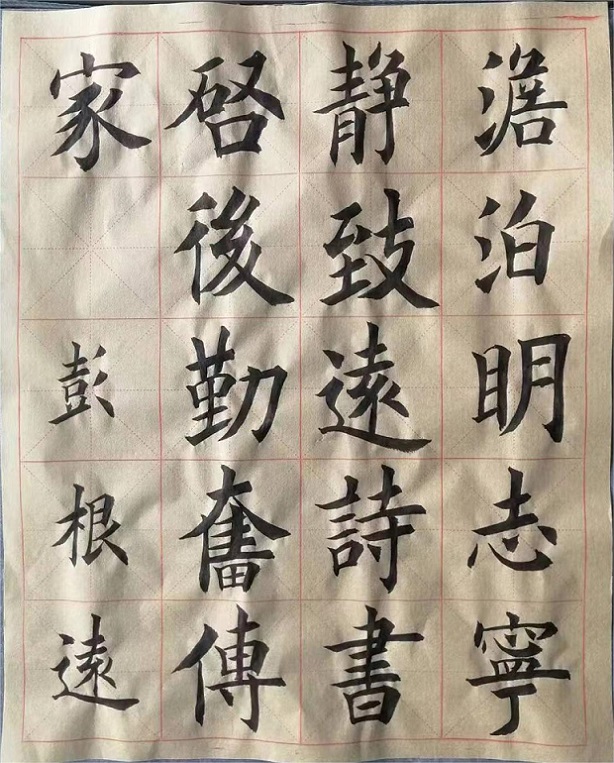 澹泊明志寧
静致遠詩書
啓後勤奮傳
家
彭根遠